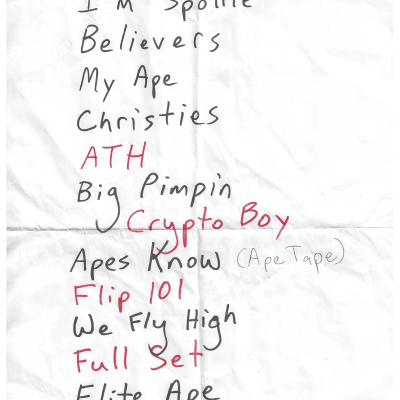 I'm Spoffie
Believers
My Ape
Christies
ATH
Big Pimpin
Crypto Boy
Apes Know (Ape Tape)
Flip 101
We Fly High
Full Set
Elite Ape